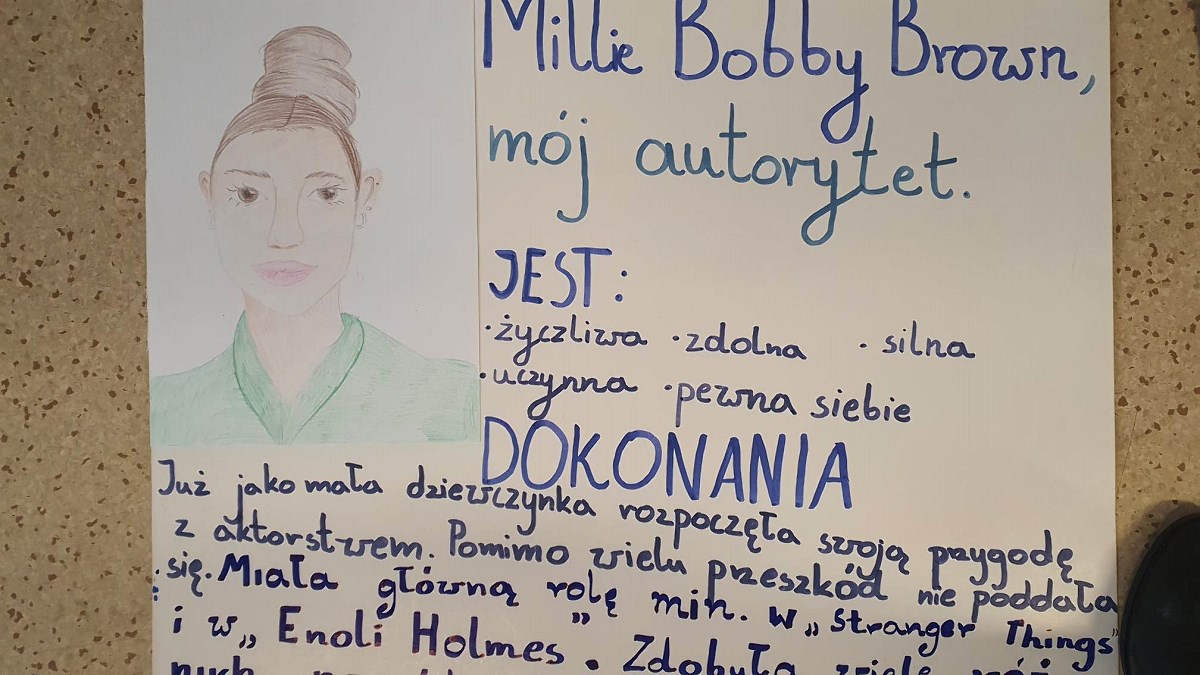 Millie Bobby Brown,
mój autorytet.
JEST:
·życzliwa ·zdolna · silna
·uczynna ·pewna siebie
DOKONANIA
Już jako mała dziewczynka rozpoczęła swoją przygodę
z aktorstwem. Pomimo wielu przeszkód nie poddała
się. Miała główną rolę min. w „Stranger Things"
i w „Enoli Holmes". Zdobyła wiele